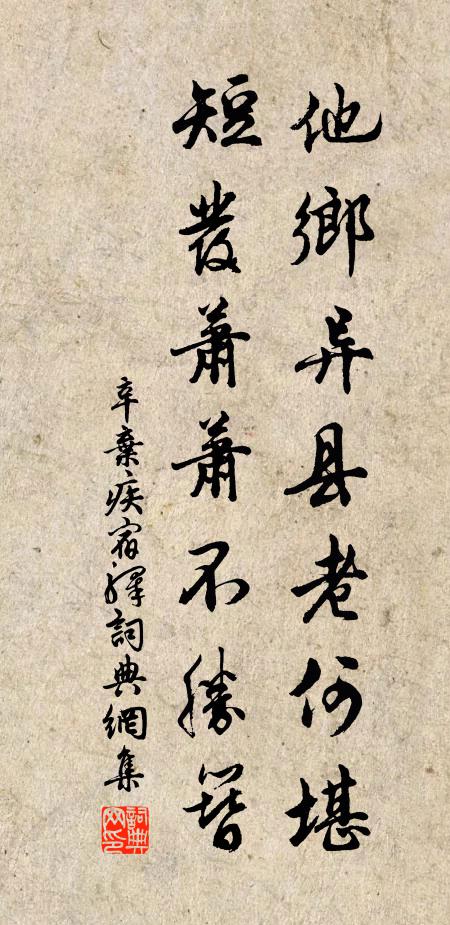 他鄉异县老何堪
短發蕭蕭不勝簪
辛棄疾宿驛詞典網集
詞典网印